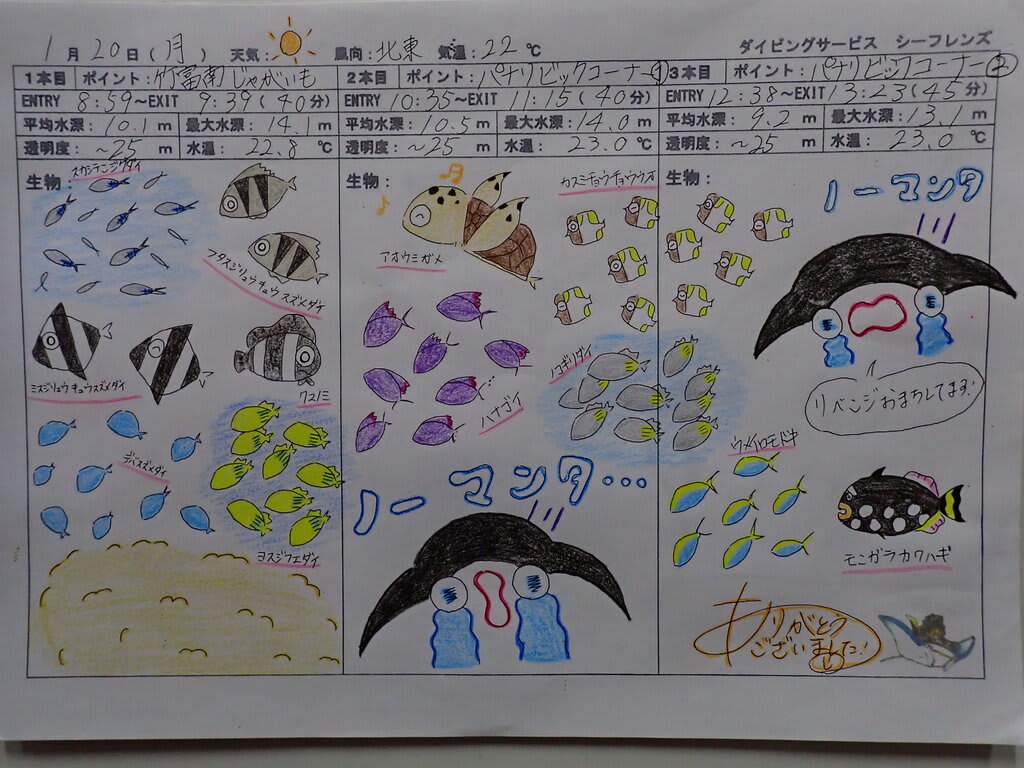 1月20日(月) 天気: 風向:北東 気温:22℃ ダイビングサービス シーフレンズ
1本目 ポイント:竹富南じゃがいも
ENTRY 8:59~EXIT 9:39(40分)
平均水深: 10.1 m 最大水深: 14.1 m
透明度: ~25 m 水温: 22.8 ℃
生物:
スカシテンジクダイ
フタスジリュウキュウスズメダイ
ミスジリュウキュウスズメダイ
クマノミ
デバスズメダイ
ヨスジフエダイ
2本目 ポイント:パナリビックコーナー①
ENTRY 10:35~EXIT 11:15(40分)
平均水深: 10.5 m 最大水深: 14.0 m
透明度: ~25 m 水温: 23.0 ℃
生物:
カスミチョウチョウウオ
アオウミガメ
ノコギリダイ
ハナゴイ
ノーマンタ...
3本目 ポイント:パナリビックコーナー②
ENTRY 12:38~EXIT 13:23(45分)
平均水深: 9.2 m 最大水深: 13.1 m
透明度: ~25 m 水温: 23.0 ℃
生物:
ノーマンタ
リベンジおまちしてます!
ウメイロモドキ
モンガラカワハギ
ありがとう
ございました!